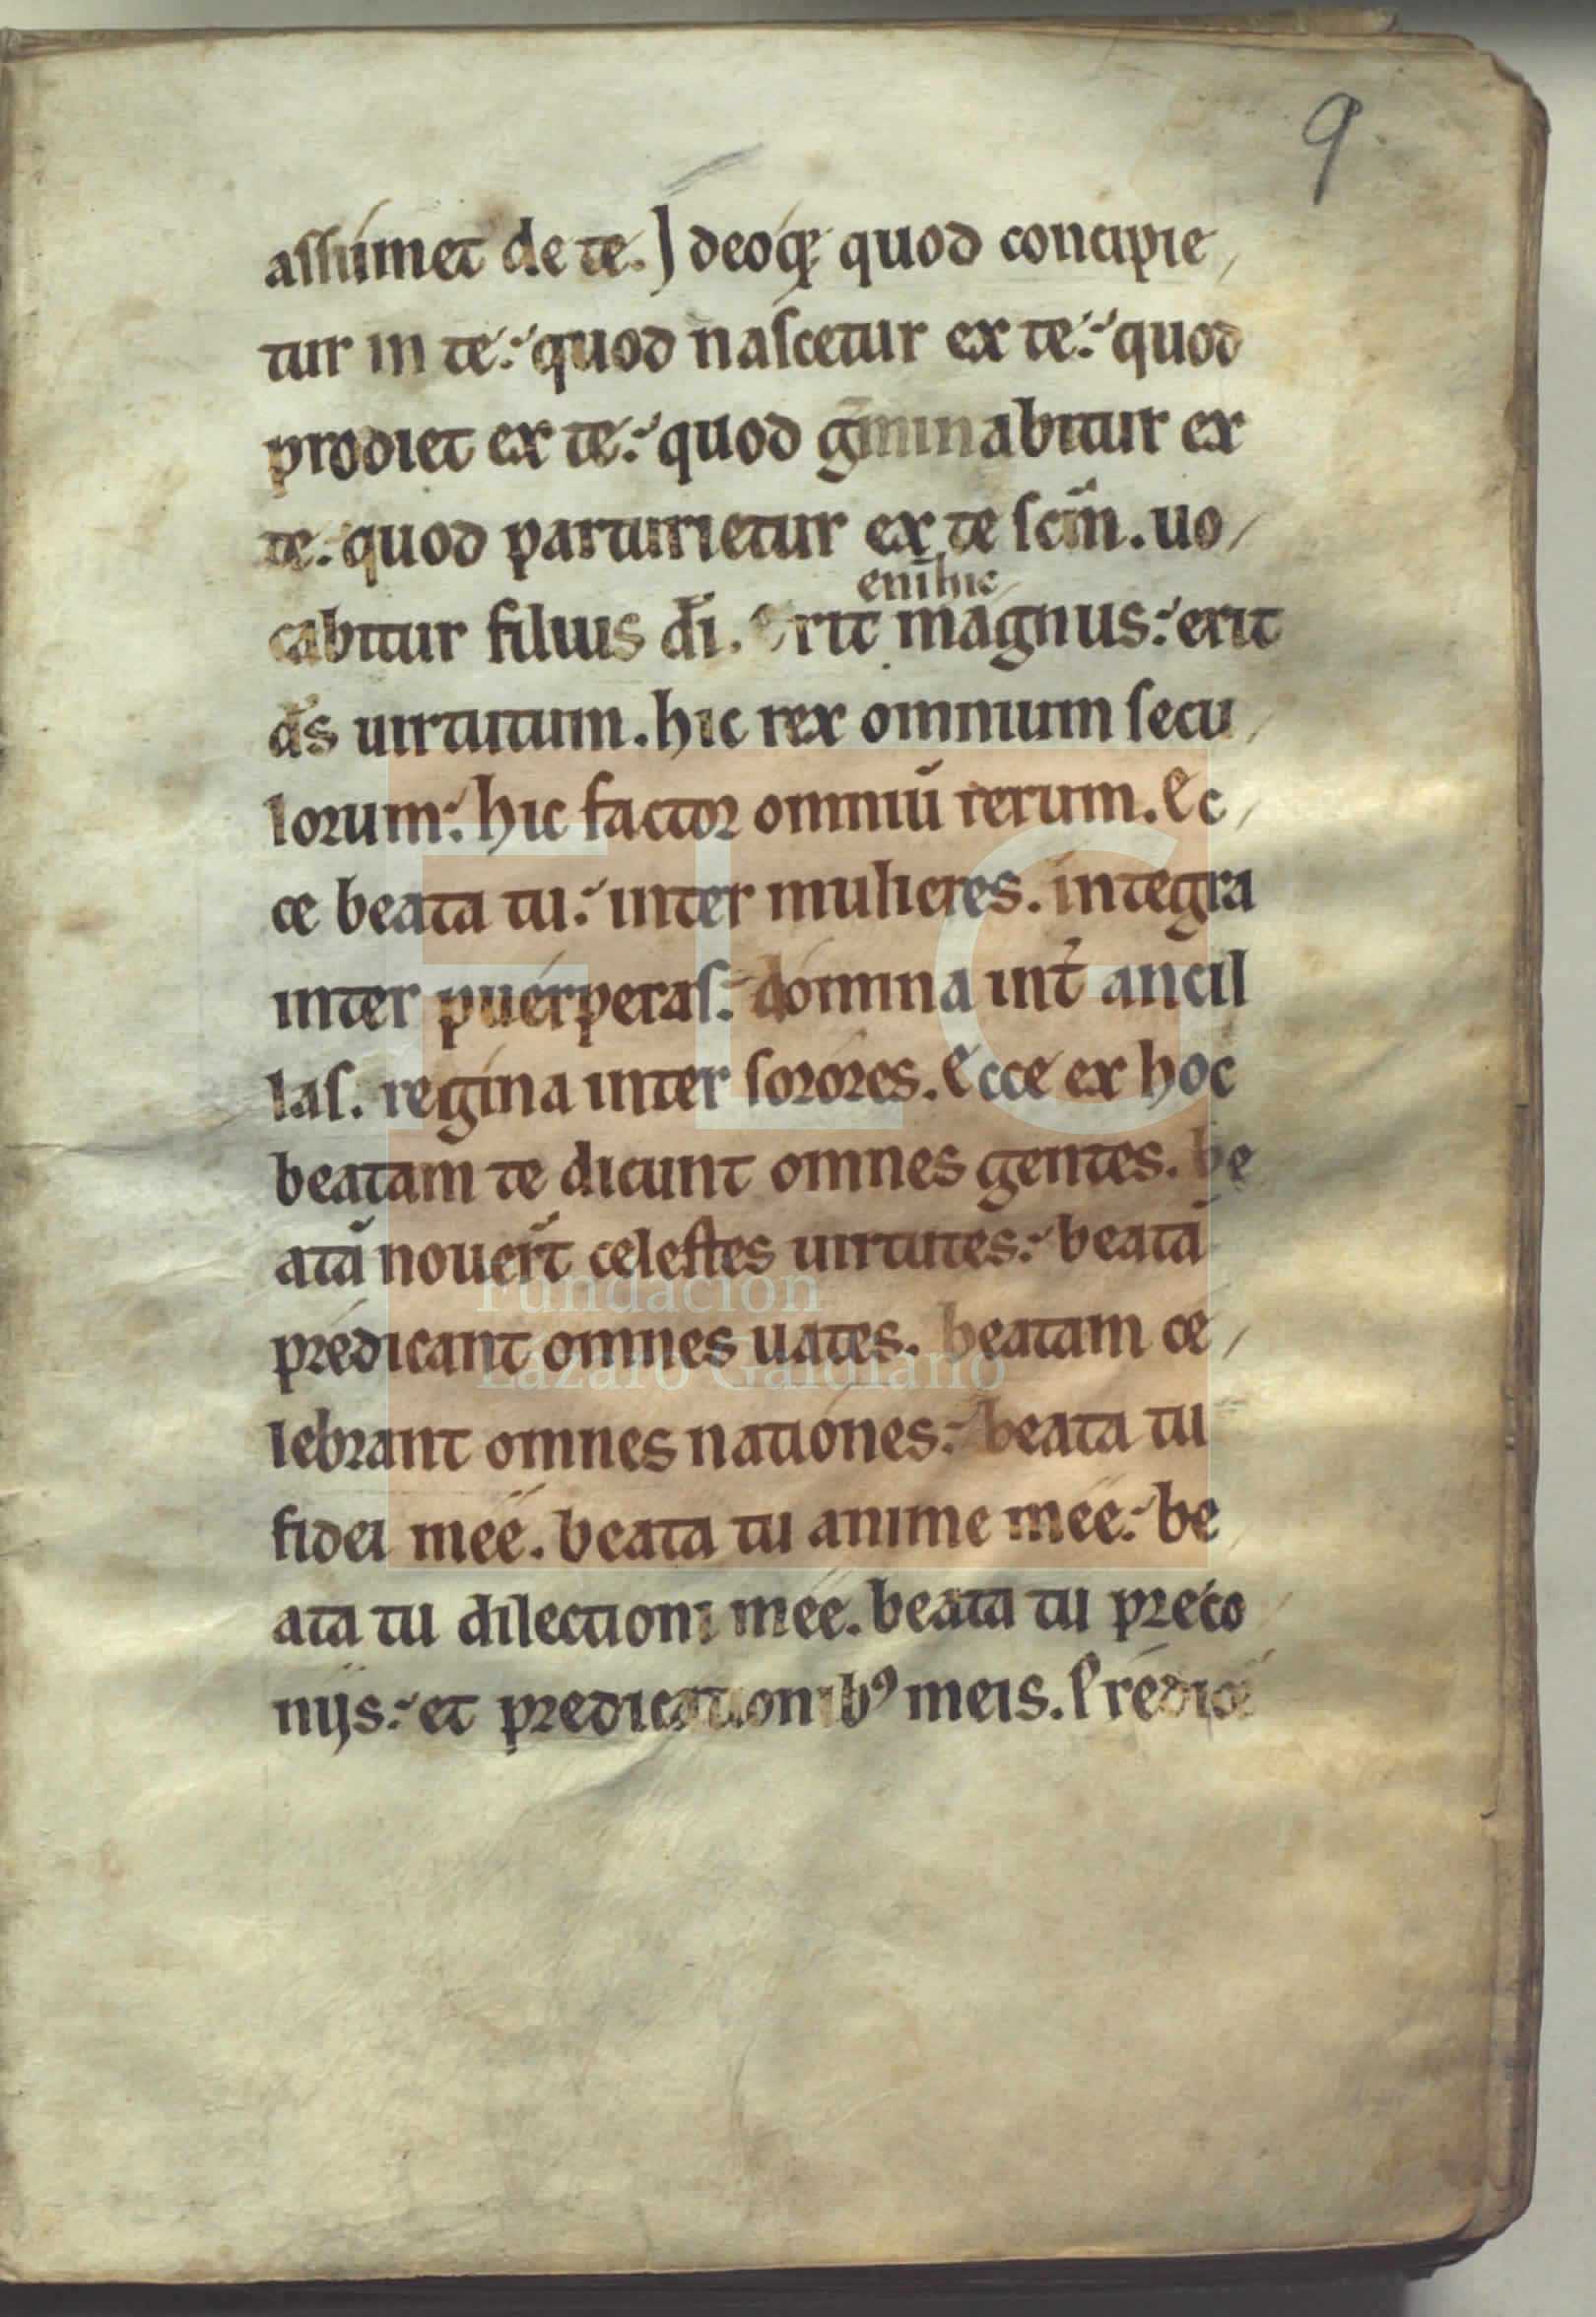 9
assumet de te. Ideoq; quod concipie
tur in te: quod nascetur ex te: quod
prodiet ex te: quod g̅minabitur ex
te: quod parturietur ex te sc̅m. uo
eni̅ hic
cabitur filius di̅. Erit magnus: erit
ds̅ uirtutum. hic rex omnium secu
lorum: hic factor omniu̅ rerum. Ec
ce beata tu: inter mulieres. integra
inter puerperas: domina int̅ ancil
las. regina inter sorores. Ecce ex hoc
beatam te dicunt omnes gentes. be
ata̅ nouer̅t celestes uirtutes: beata̅
predicant omnes uates. beatam ce
lebrant omnes nationes: beata tu
fidei mee. beata tu anime mee: be
ata tu dilectioni mee. beata tu preco
nijs: et predicationibꝰ meis. Predice
FLG
Fundación
Lázaro Galdiano